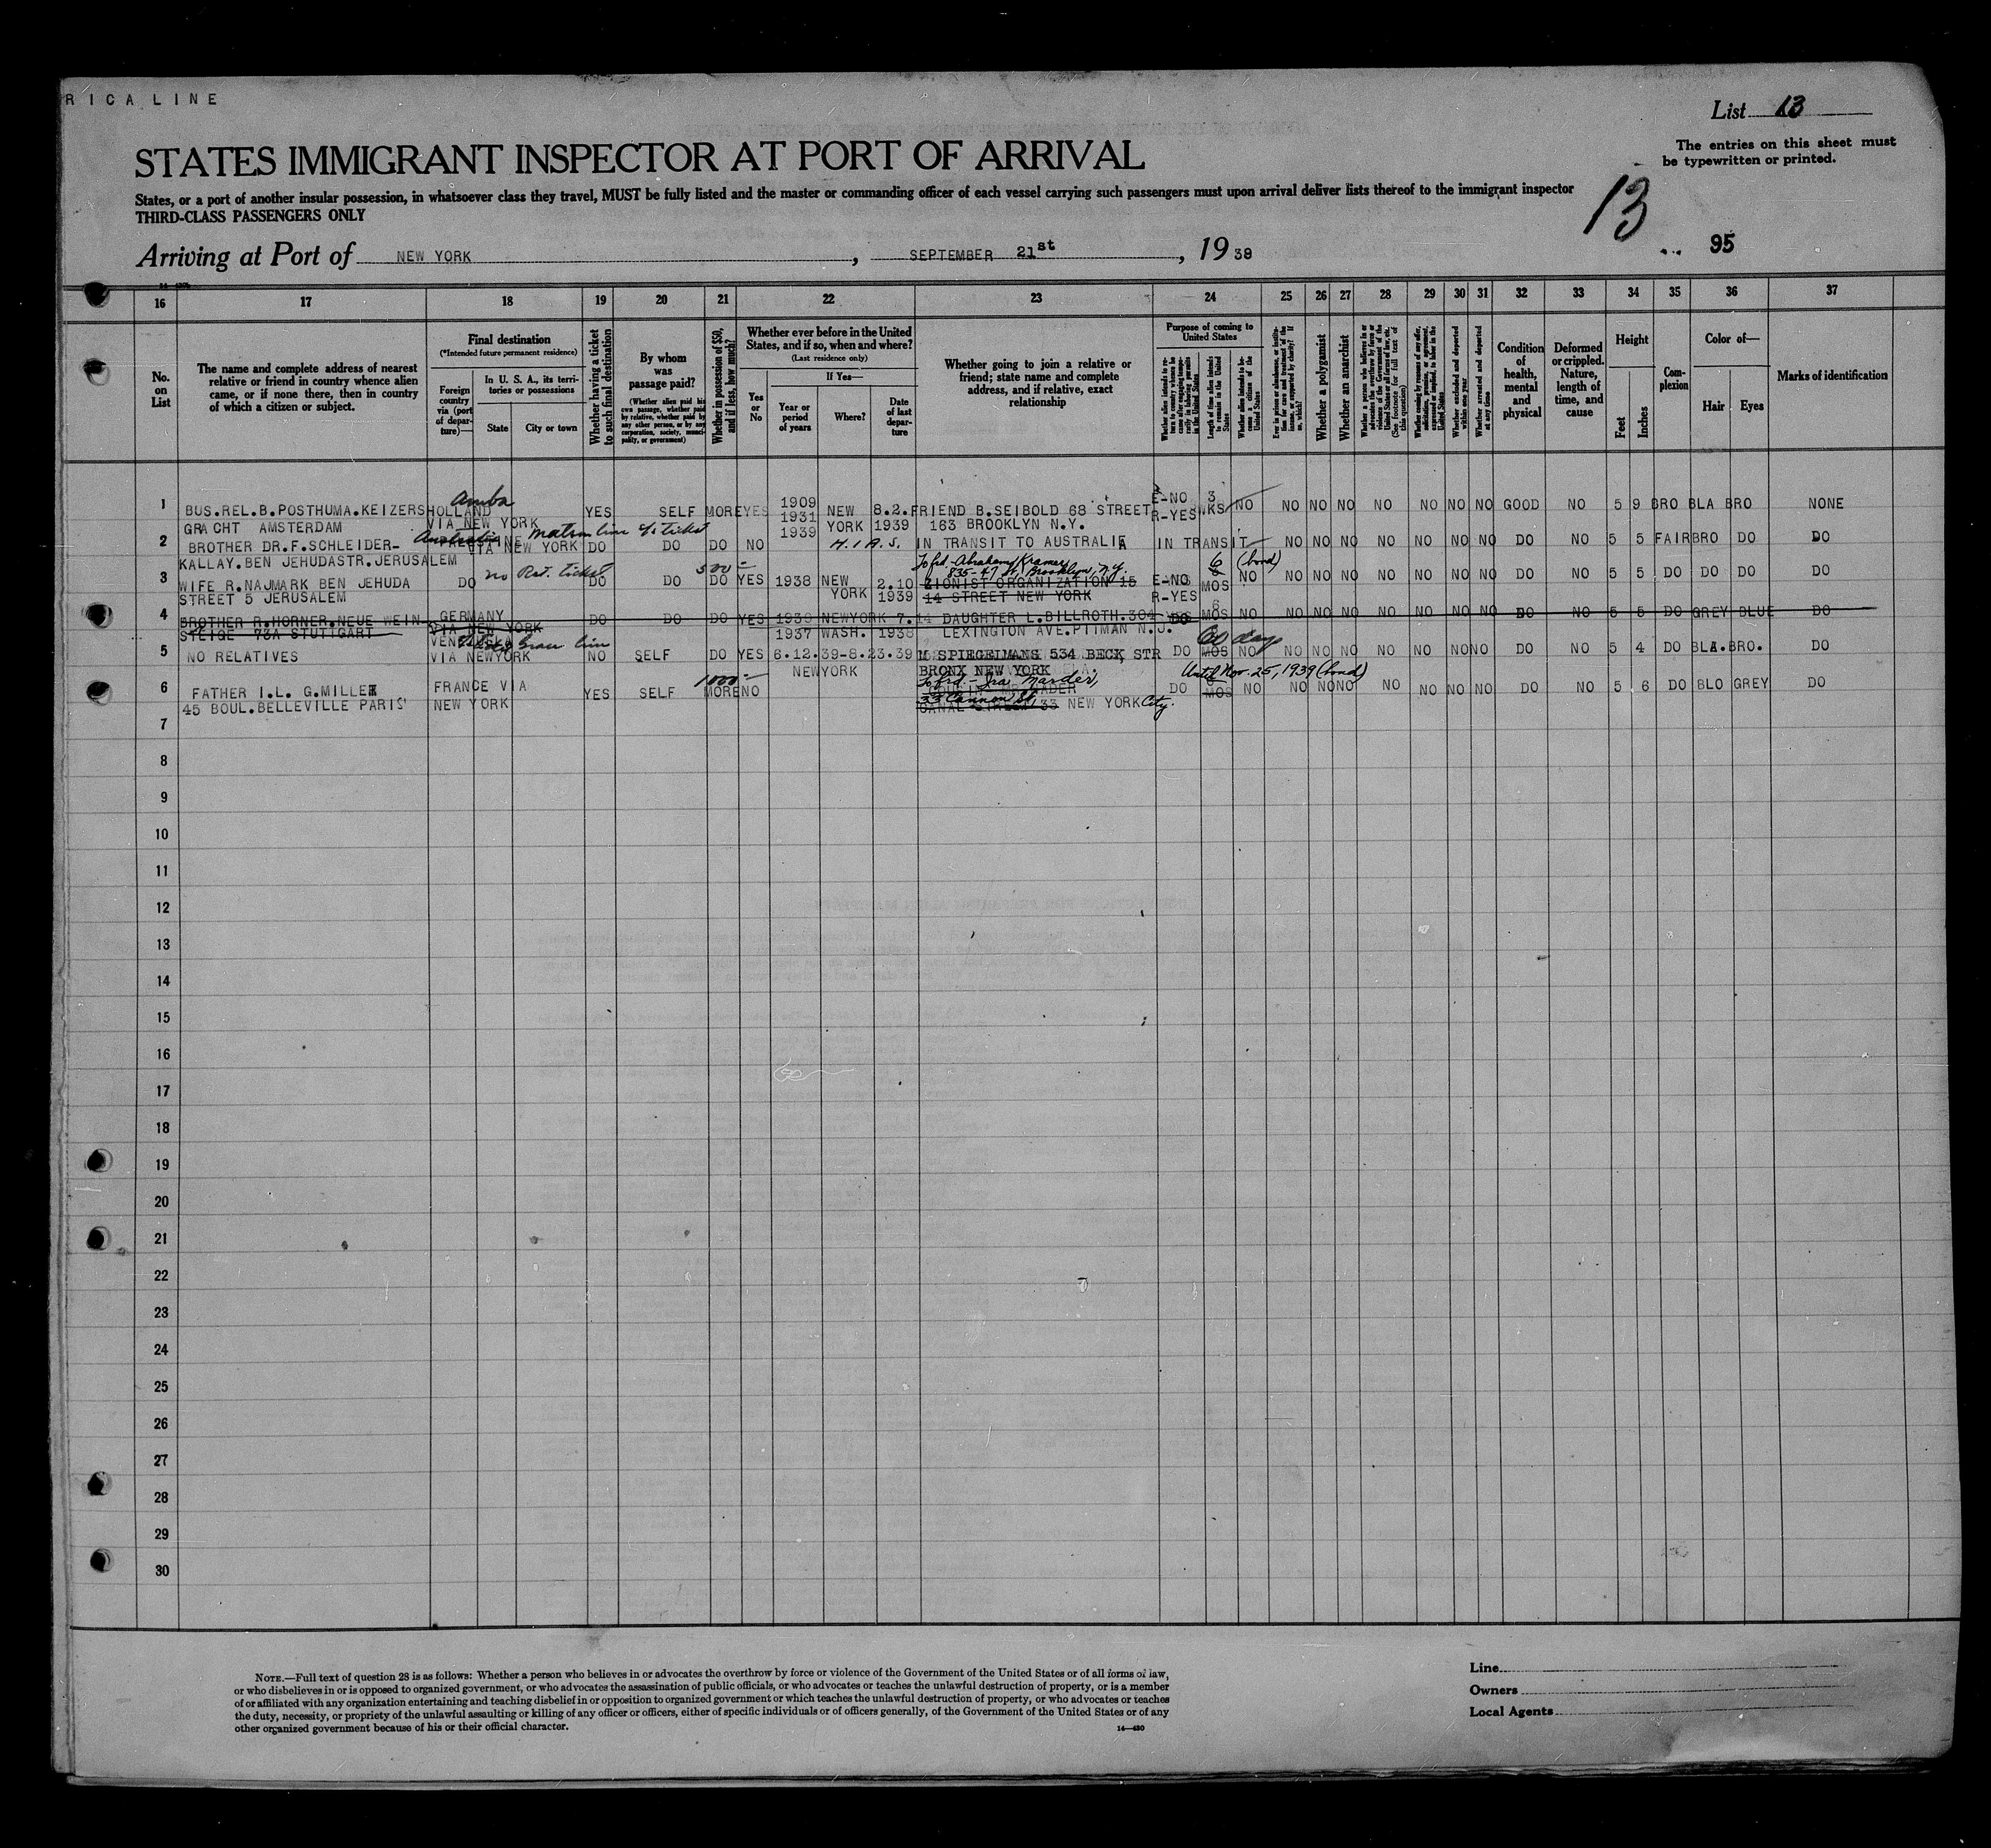 RICA LINE
List 13
STATES IMMIGRANT INSPECTOR AT PORT OF ARRIVAL
The entries on this sheet must
be typewritten or printed.
States, or a port of another insular possession, in whatsoever class they travel, MUST be fully listed and the master or commanding officer of each vessel carrying such passengers must upon arrival deliver lists thereof to the immigrant inspector
THIRD-CLASS PASSENGERS ONLY
13
95
Arriving at Port of NEW YORK, SEPTEMBER 21st, 1939
16 17 18 19 20 21 22 23 24 25 26 27 28 29 30 31 32 33 34 35 36 37
No. on List
The name and complete address of nearest
relative or friend in country whence alien
came, or if none there, then in country
of which a citizen or subject.
Final destination
(*Intended future permanent residence)
Foreign country via (port of departure)—
In U. S. A., its territories or possessions
State
City or town
Whether having a ticket to such final destination
By whom was passage paid?
(Whether alien paid his own passage, whether paid by relative, whether paid by any other person, or by any corporation, society, municipality, or government)
Whether in possession of $50, and if less, how much?
Whether ever before in the United
States, and if so, when and where?
(Last residence only)
Yes or No
If Yes—
Year or period of years
Where?
Date of last departure
Whether going to join a relative or
friend; state name and complete
address, and if relative, exact
relationship
Purpose of coming to United States
Length of time alien intends to remain in the United States
Whether alien intends to become a citizen of the United States
Whether a polygamist
Whether an anarchist
Whether arrested and deported at any time
Condition of health, mental and physical
Deformed or crippled. Nature, length of time, and cause
Height
Feet
Inches
Complexion
Color of—
Hair
Eyes
Marks of identification
1 BUS.REL.B.POSTHUMA.KEIZERS HOLLAND Aruba YES SELF MORE YES 1909 1931 1939 NEW YORK 8.2. 1939 FRIEND B.SEIBOLD 68 STREET E-NO R-YES 3 WKS NO NO NO NO NO NO NO NO GOOD NO 5 9 BRO BLA BRO NONE
GRACHT AMSTERDAM VIA NEW YORK 163 BROOKLYN N.Y.
2 BROTHER DR.F.SCHLEIDER- Australia VIA NEW YORK Matson line s/s ticket DO DO DO NO H.I.A.S. IN TRANSIT TO AUSTRALIA IN TRANSIT NO NO NO NO NO NO NO DO NO 5 5 FAIR BRO DO DO
KALLAY.BEN JEHUDASTR.JERUSALEM
3 WIFE R.NAJMARK BEN JEHUDA DO no Ret. ticket DO DO 500- DO YES 1938 NEW YORK 2.10 1939 To frd.- Abraham Kramer 835-47 St. Brooklyn, N.Y. ZIONIST ORGANIZATION 15 E-NO R-YES 6 MOS (bond) NO NO NO NO NO NO NO NO DO NO 5 5 DO DO DO DO
STREET 5 JERUSALEM 14 STREET NEW YORK
4 BROTHER R.HORNER.NEUE WEIN- GERMANY DO DO DO YES NEWYORK 7.14 DAUGHTER L.BILLROTH.304 MOS NO NO NO NO NO NO NO NO DO NO 5 5 DO GREY BLUE DO
STEIGE 73A STUTTGART VIA NEW YORK 1937 WASH. 1938 LEXINGTON AVE.PITMAN N.J.
5 NO RELATIVES VIA NEWYORK Grace line NO SELF DO YES 6.12.39-8.23.39 NEWYORK M SPIEGELMANS 534 BECK STR DO 60 days MOS NO NO NO NO NO NO NO NO DO NO 5 4 DO BLA. BRO. DO
BRONX NEW YORK
6 FATHER I.L. G.MILLER FRANCE VIA YES SELF 1000- MORE NO To frd. - Ira Marder, DO Until Nov. 25, 1939 (bond) MOS NO NO NO NO NO NO NO NO DO NO 5 6 DO BLO GREY DO
45 BOUL.BELLEVILLE PARIS NEW YORK CANAL STREET 33 NEW YORK City.
7
8
9
10
11
12
13
14
15
16
17
18
19
20
21
22
23
24
25
26
27
28
29
30
NOTE.—Full text of question 28 is as follows: Whether a person who believes in or advocates the overthrow by force or violence of the Government of the United States or of all forms of law,
or who disbelieves in or is opposed to organized government, or who advocates the assassination of public officials, or who advocates or teaches the unlawful destruction of property, or is a member
of or affiliated with any organization entertaining and teaching disbelief in or opposition to organized government or which teaches the unlawful destruction of property, or who advocates or teaches
the duty, necessity, or propriety of the unlawful assaulting or killing of any officer or officers, either of specific individuals or of officers generally, of the Government of the United States or of any
other organized government because of his or their official character.
14—430
Line
Owners
Local Agents